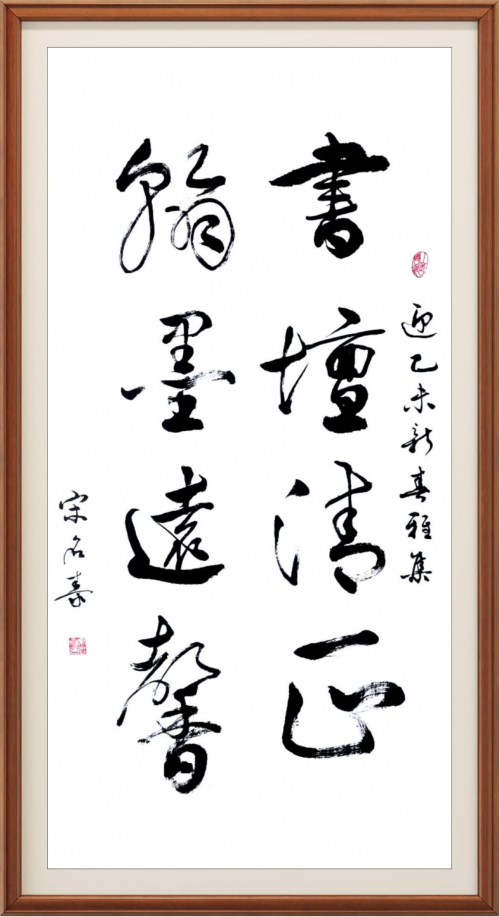 迎乙未新春雅集
書壇清正
翰墨遠馨
宋名泰